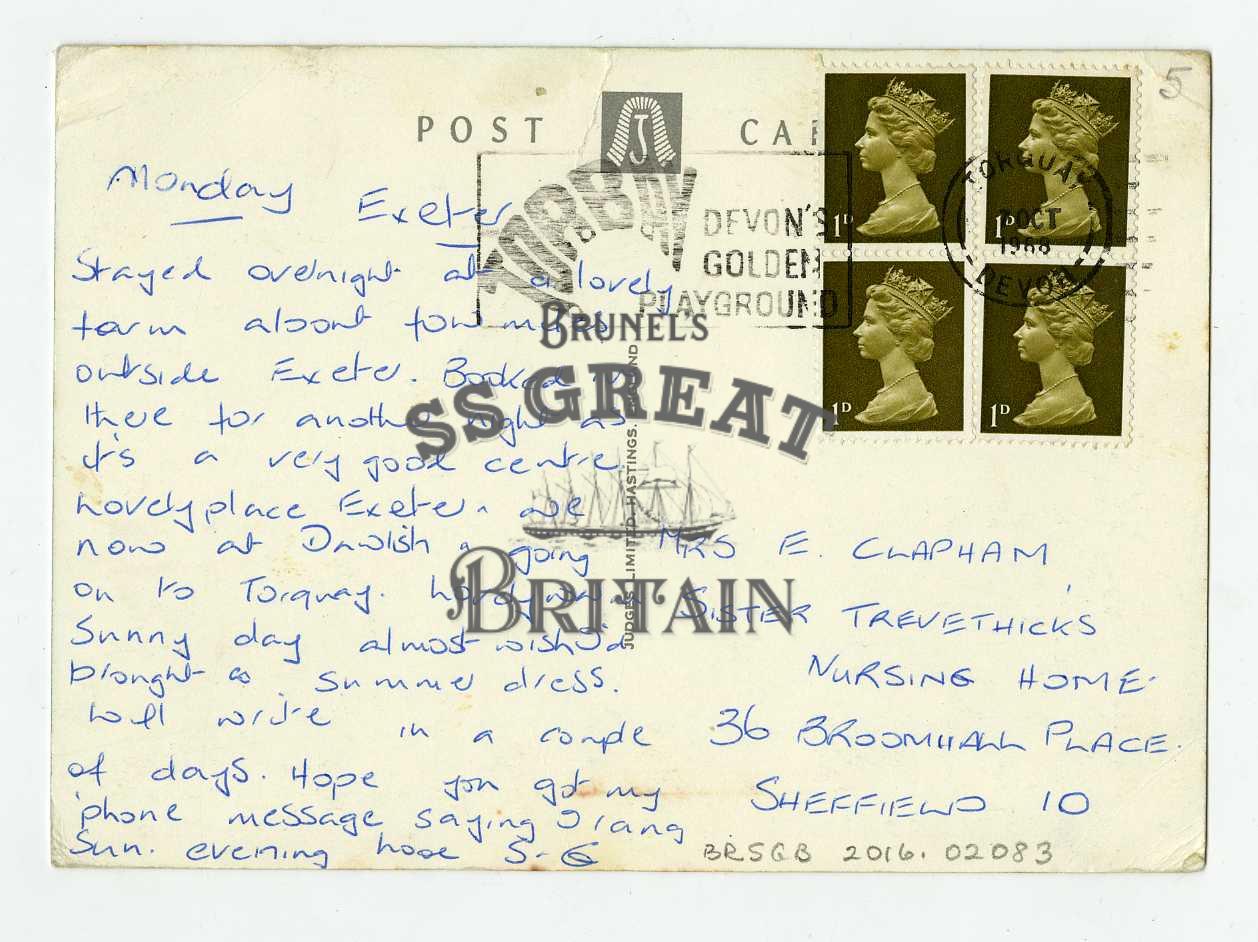 POST CAR
J
TORBAY
DEVON'S
GOLDEN
PLAYGROUND
TORQUAY
OCT
1968
DEVON
1D
1D
1D
1D
5
Monday
Exeter
Stayed overnight at a lovely
farm about four miles
outside Exeter. Booked in
there for another night as
it's a very good centre.
Lovely place Exeter. We
now at Dawlish & going
on to Torquay.
Sunny day almost wished I'd
brought a summer dress.
Will write in a couple
of days. Hope you got my
'phone message saying I rang
Sun. evening
BRUNEL'S
SS GREAT
BRITAIN
JUDGES LIMITED, HASTINGS,
MRS E. CLAPHAM,
SISTER TREVETHICKS
NURSING HOME.
36 BROOMHALL PLACE.
SHEFFIELD 10
BRSGB 2016.02083